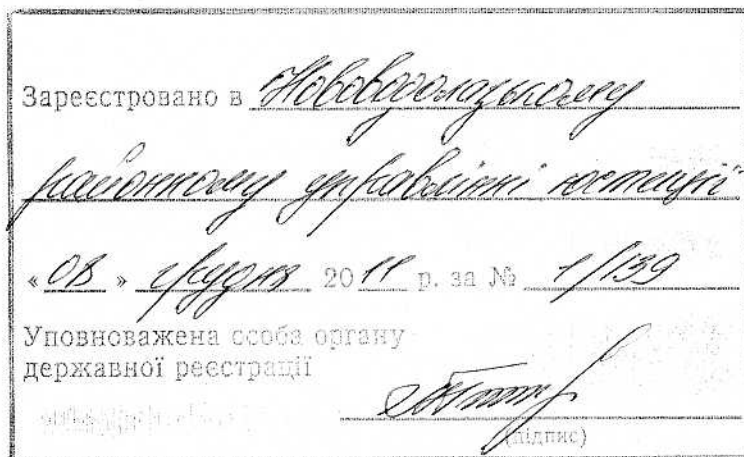 Зареєстровано в Нововодолазькому
районному управлінні юстиції
«08» грудня 2011 р. за № 1/139
Уповноважена особа органу
державної реєстрації
(підпис)